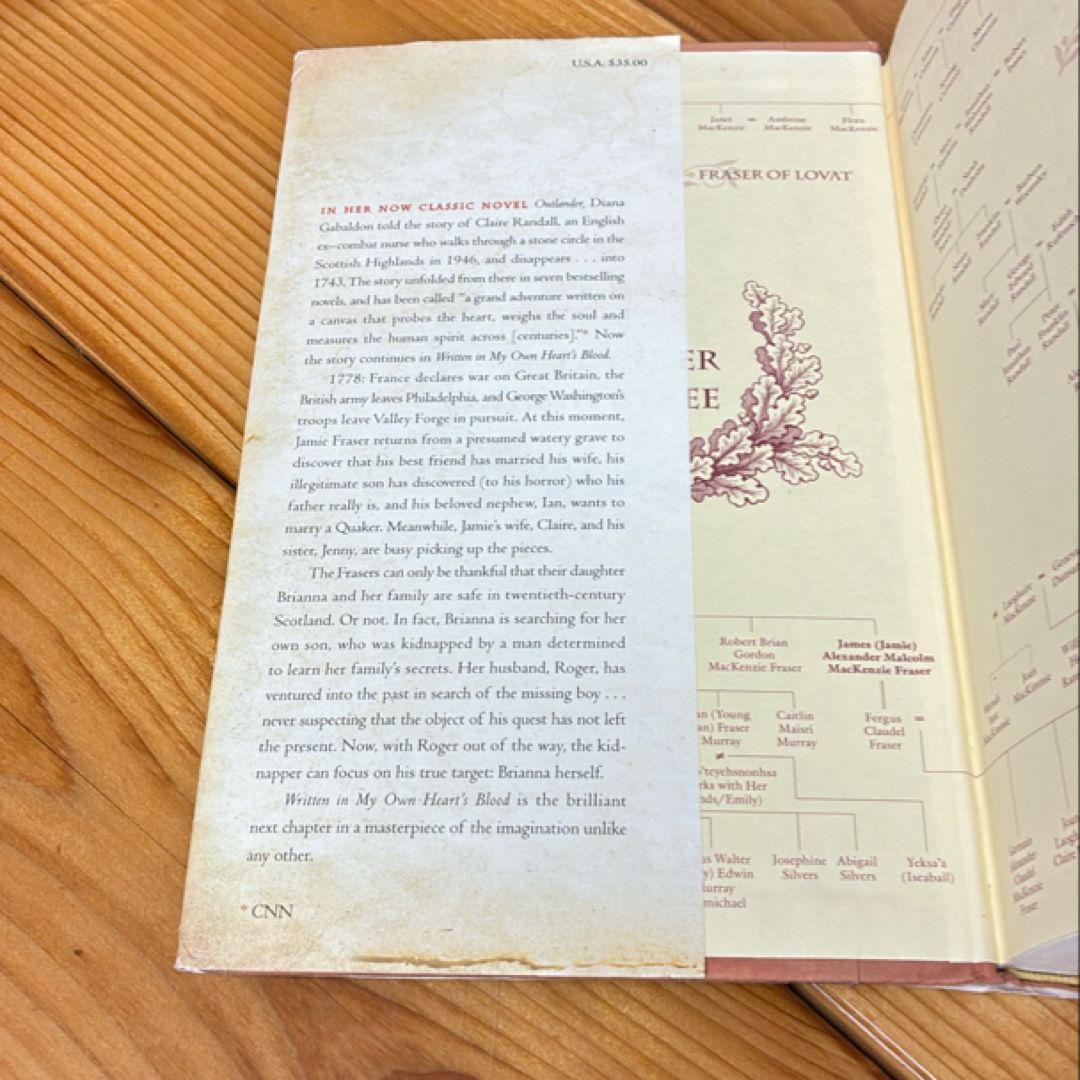 U.S.A. $35.00
IN HER NOW CLASSIC NOVEL Outlander, Diana
Gabaldon told the story of Claire Randall, an English
ex–combat nurse who walks through a stone circle in the
Scottish Highlands in 1946, and disappears . . . into
1743. The story unfolded from there in seven bestselling
novels, and has been called “a grand adventure written on
a canvas that probes the heart, weighs the soul and
measures the human spirit across [centuries].”* Now
the story continues in Written in My Own Heart’s Blood.
1778: France declares war on Great Britain, the
British army leaves Philadelphia, and George Washington’s
troops leave Valley Forge in pursuit. At this moment,
Jamie Fraser returns from a presumed watery grave to
discover that his best friend has married his wife, his
illegitimate son has discovered (to his horror) who his
father really is, and his beloved nephew, Ian, wants to
marry a Quaker. Meanwhile, Jamie’s wife, Claire, and his
sister, Jenny, are busy picking up the pieces.
The Frasers can only be thankful that their daughter
Brianna and her family are safe in twentieth-century
Scotland. Or not. In fact, Brianna is searching for her
own son, who was kidnapped by a man determined
to learn her family’s secrets. Her husband, Roger, has
ventured into the past in search of the missing boy . . .
never suspecting that the object of his quest has not left
the present. Now, with Roger out of the way, the kid-
napper can focus on his true target: Brianna herself.
Written in My Own Heart’s Blood is the brilliant
next chapter in a masterpiece of the imagination unlike
any other.
* CNN
Janet = Ambrose Flora
MacKenzie MacKenzie MacKenzie
FRASER OF LOVAT
ER
EE
Robert Brian
Gordon
MacKenzie Fraser
James (Jamie)
Alexander Malcolm
MacKenzie Fraser
an (Young
an) Fraser
Murray
Caitlin
Maisri
Murray
Fergus =
Claudel
Fraser
≠
'teyehsnonhsa
rks with Her
nds/Emily)
as Walter
y) Edwin
urray
michael
Josephine
Silvers
Abigail
Silvers
Yeksa'a
(Iseabail)
Laoghaire
MacKenzie
Joan
MacKenzie
German
Alexander
Claudel
MacKenzie
Fraser